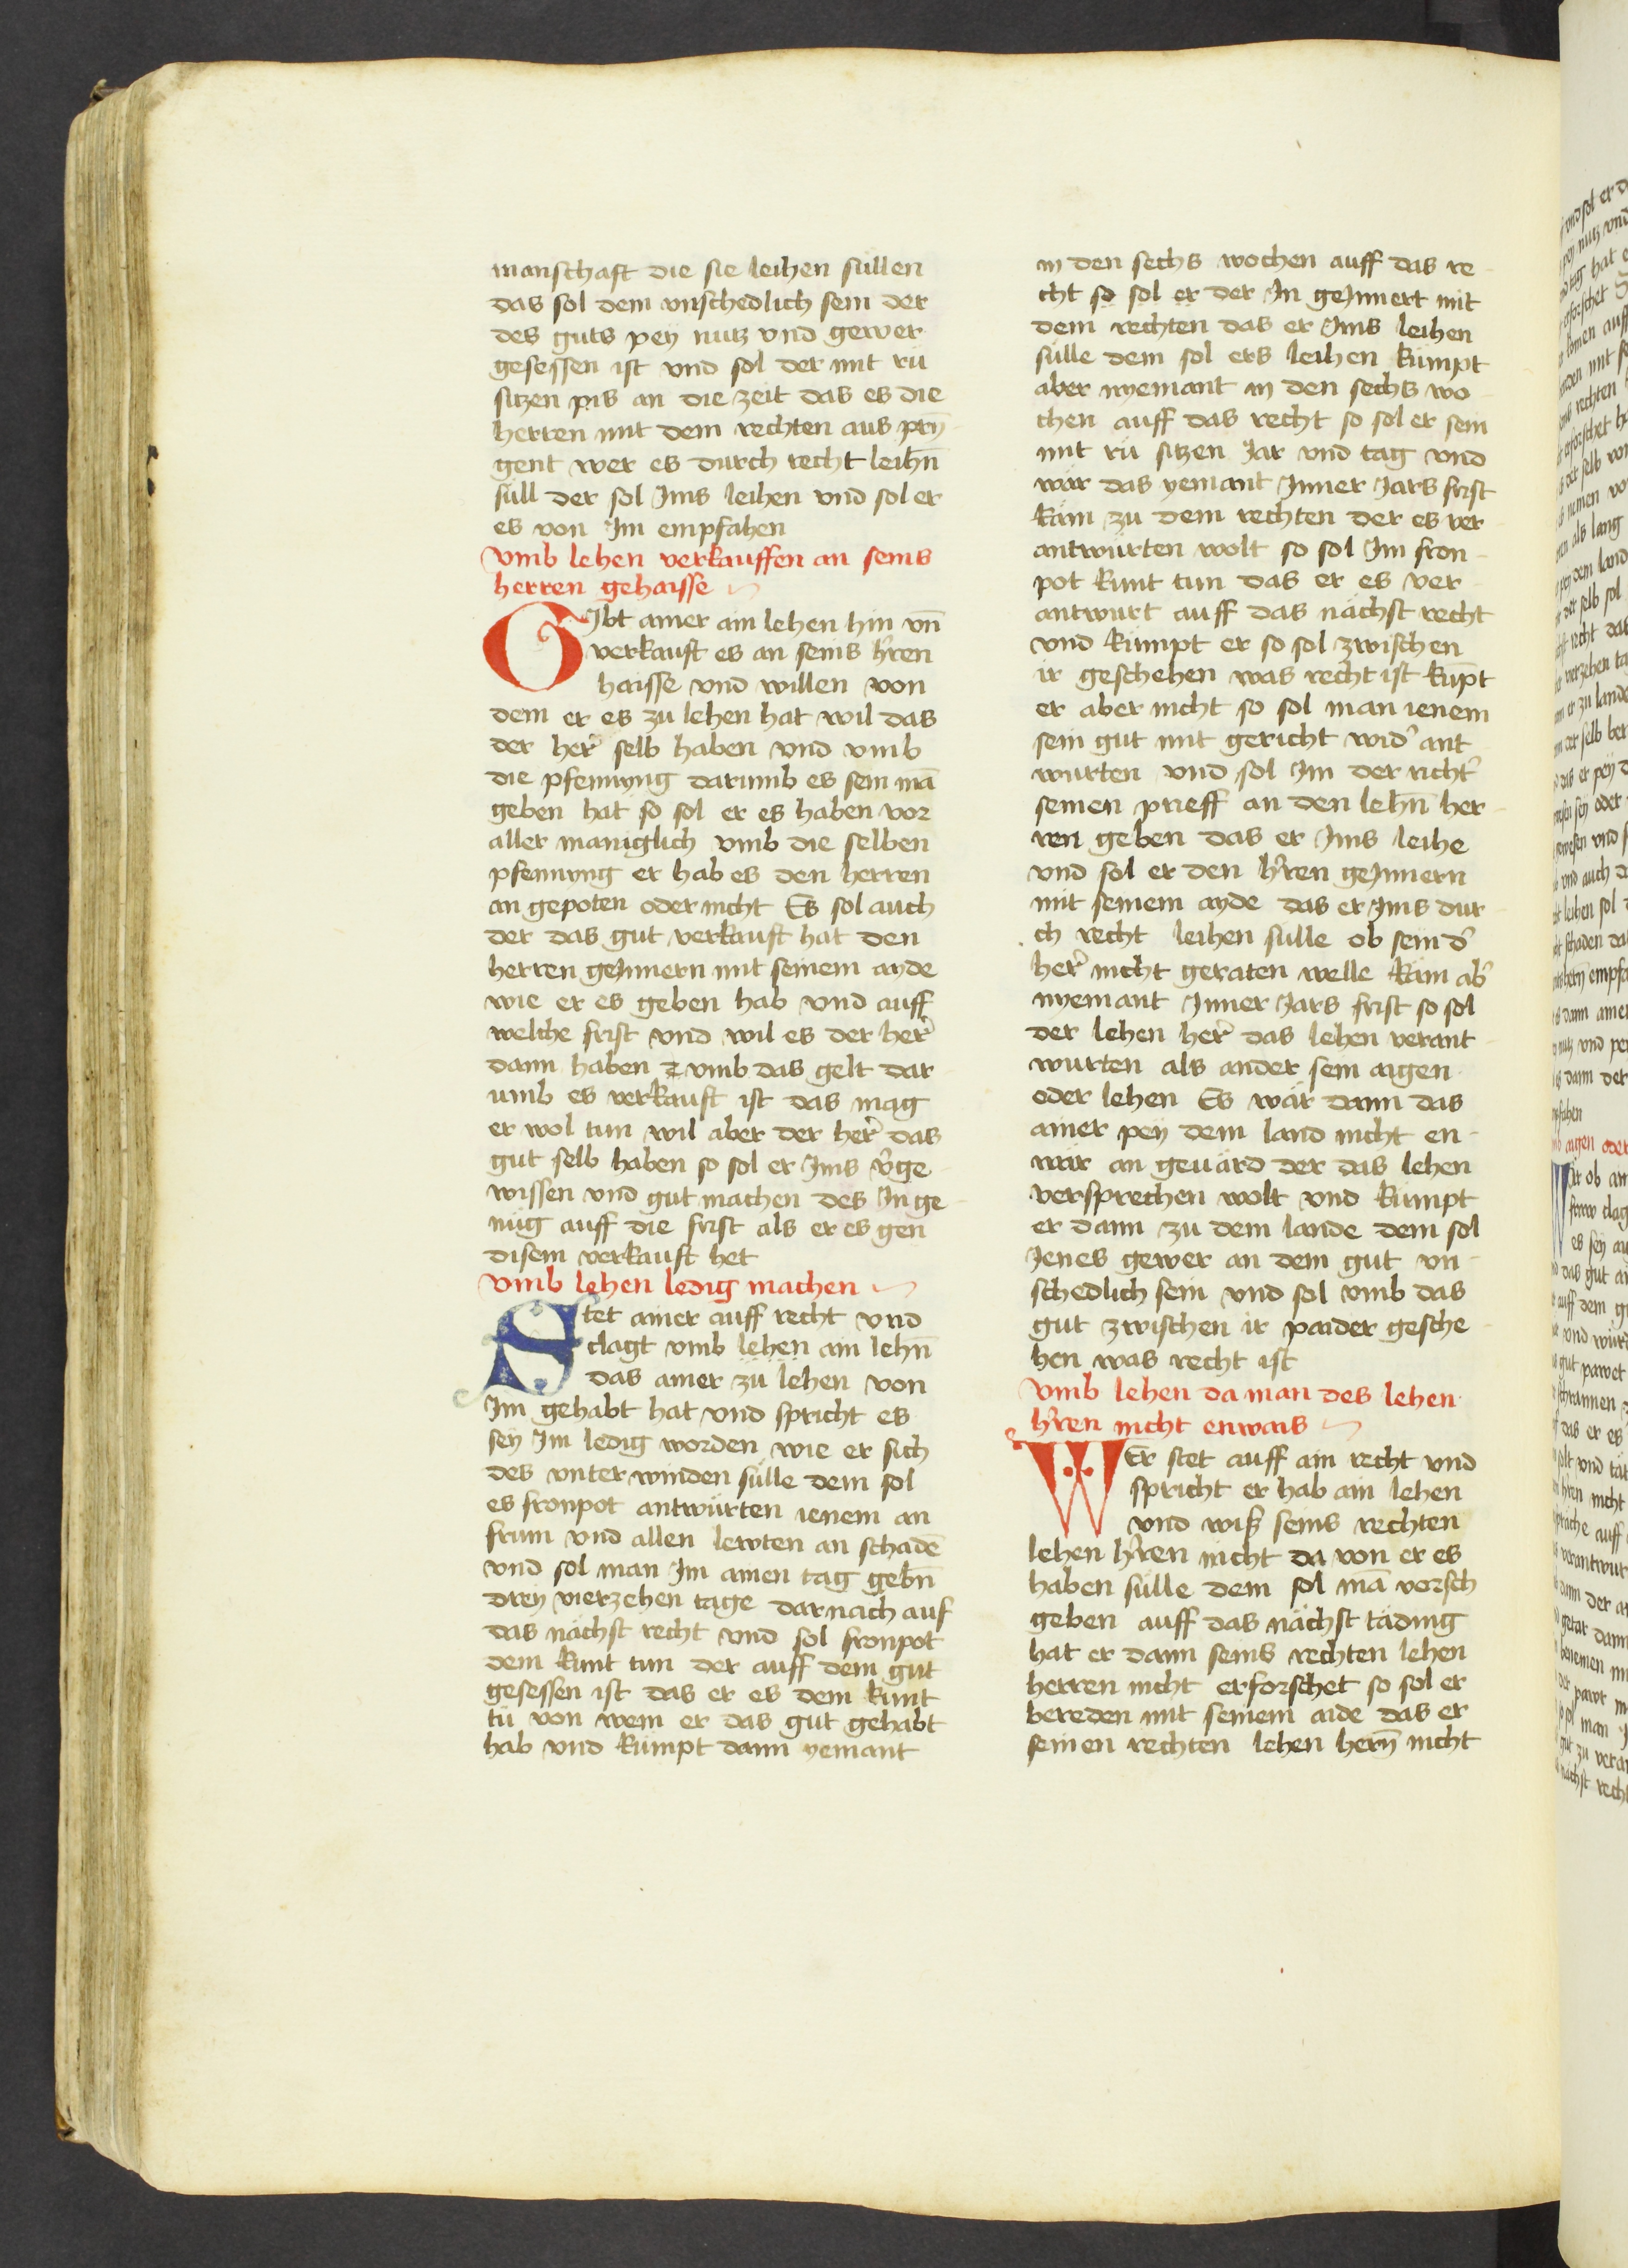 manschaft die sie leihen süllen
das sol dem vnschedlich sein der
des guts pey nutz vnd gewer
gesessen ist vnd sol der mit rü
sitzen pis an die zeit das es die
herren mit dem rechten aus prin̄
gent wer es durch recht leihn̄
süll der sol Ims leihen vnd sol er
es von Im empfahen
vmb lehen verkauffen an seins
herren gehaisse
GIbt ainer ain lehen hin vn̄
verkauft es an seins hr̄en
haisse vnd willen von
dem er es zu lehen hat wil das
der her̄ selb haben vnd vmb
die pfennyng darumb es sein mā
geben hat so sol er es haben vor
aller maniglich vmb die selben
pfennyng er hab es den herren
an gepoten oder nicht Es sol auch
der das gut verkauft hat den
herren geInnern mit seinem ayde
wie er es geben hab vnd auff
welche frist vnd wil es der her̄
dann haben ꝛ vmb das gelt dar
umb es verkauft ist das mag
er wol tun wil aber der her̄ das
gut selb haben so sol er Ims v̄ge
wissen vnd gut machen des In ge
nüg auff die frist als er es gen
disem verkauft het
vmb lehen ledig machen
Stet ainer auff recht vnd
clagt vmb lehen ain lehn̄
das ainer zü lehen von
Im gehabt hat vnd spricht es
sey Im ledig worden wie er sich
des vnter winden sülle dem sol
es fronpot antwürten ienem an
frum vnd allen lewten an schadē
vnd sol man Im ainen tag gebn̄
drey vierzehen tage darnach auf
das nächst recht vnd sol fronpot
dem kunt tun der auff dem gut
gesessen ist das er es dem kunt
tü von wem er das gut gehabt
hab vnd kümpt dann yemant
in den sechs wochen auff das re
cht so sol er der In geInnert mit
dem rechten das er Ims leihen
sülle dem sol ers leihen kümpt
aber nyemant in den sechs wo
chen auff das recht so sol er sein
mit rü sitzen Jar vnd tag vnd
wär das yemant Inner Jars frist
käm zu dem rechten der es ver
antwürten wolt so sol Im fron
pot kunt tun das er es ver
antwurt auff das nächst recht
vnd kümpt er so sol zwischen
ir geschehen was recht ist küm̄pt
er aber nicht so sol man ienem
sein gut mit gericht wid' ant
wurten vnd sol Im der richt'
seinen prieff an den lehn̄ her
ren geben das er Ims leihe
vnd sol er den hr̄en geInnern
mit seinem ayde das er Ims dur
ch recht leihen sülle ob sein d'
her̄ nicht geraten welle käm ab'
nyemant Inner Jars frist so sol
der lehen her̄ das lehen verant
wurten als ander sein aigen
oder lehen Es wär dann das
ainer pey dem land nicht en
wär an geuärd der das lehen
versprechen wolt vnd kümpt
er dann zu dem lande dem sol
Jenes gewer an dem gut vn
schedlich sein vnd sol vmb das
gut zwischen ir paider gesche
hen was recht ist
vmb lehen da man des lehen
hr̄en nicht enwais
WEr stet auff ain recht vnd
spricht er hab ain lehen
vnd wiß seins rechten
lehen hr̄en nicht da von er es
haben sülle dem sol mā vorsch
geben auff das nächst täding
hat er dann seins rechten lehen
herren nicht erforschet so sol er
bereden mit seinem aide das er
seinen rechten lehen hern̄ nicht